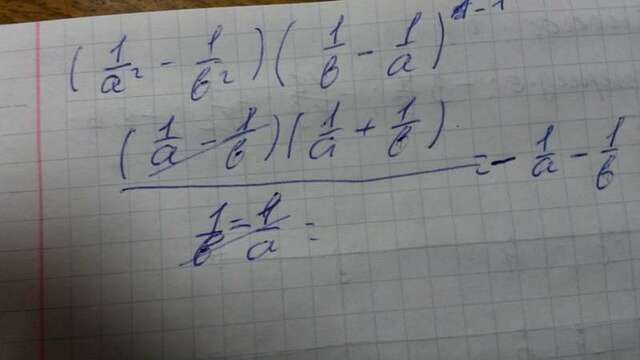 (1/a² - 1/b²)(1/b - 1/a)⁻¹
(1/a - 1/b)(1/a + 1/b)
= - 1/a - 1/b
1/b - 1/a =